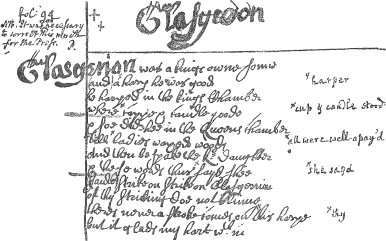 fol: 94
NB. It was necessary
to correct this much
for the Press. P.
The Glasgerion
Glasgerion was a kings owne sonne
and a harper he was good
he harped in the kings chamber
where cuppe & candle yoode
& soe did hee in the Queens chamber
till ladies waxed wood
and then bespake the Ks daughter
& these words thus sayd shee
strike on strike on Glasgerrion
of thy striking doe not blinne
theres never a stroke comes over this harpe
but it glads my hart w:in
*harper
*cup & candle stood
all were well-apay'd
*He sayd
*thy